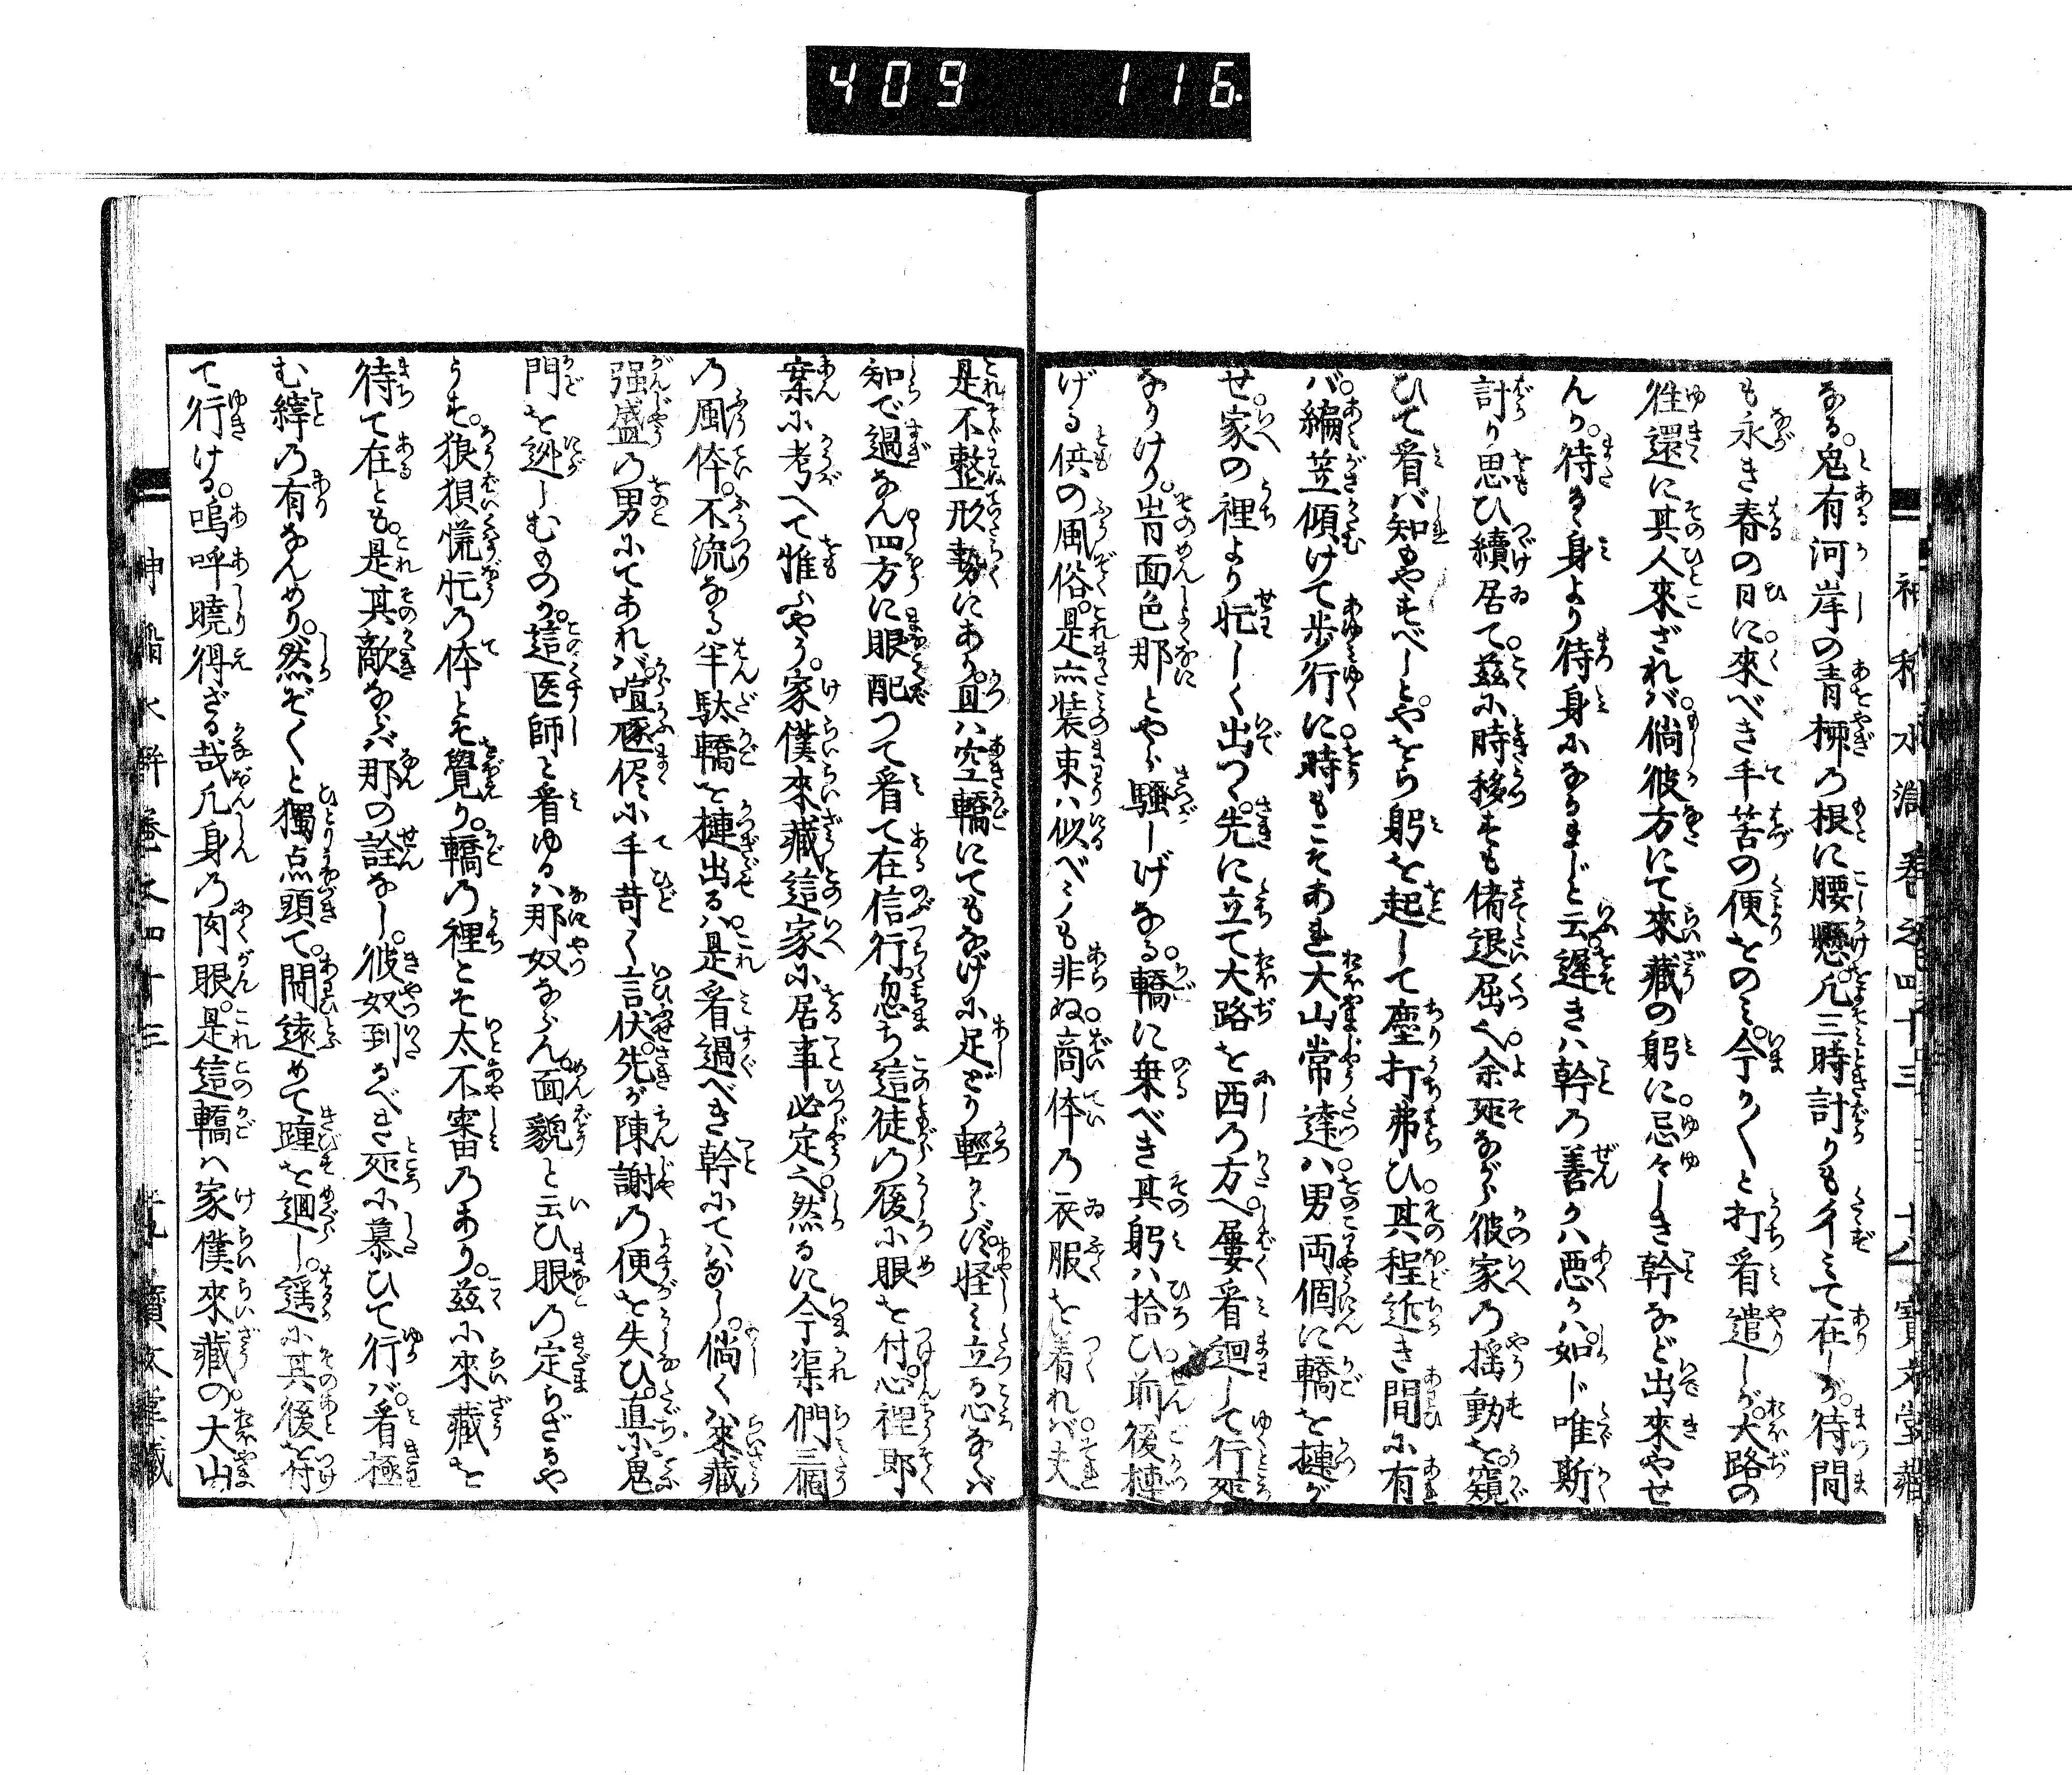 409 116
神稲水滸 巻之四十三 十八 寳文堂藏
なる。鬼有河岸の青栁の根に腰懸。凡三時計りも彳みて在しが。待間
も永き春の日に來べき千苦の便をのみ。今か〱と打看遣しが。大路の
徃還に其人來ざれバ。倘彼方にて來藏の躬に忌々しき幹など出來やせ
んか。待る身より待身になるまじと云。遲きハ幹の善かハ悪かハ。如じ唯斯
計り思ひ續居て。茲に時移すも偖退屈く。余処ながら彼家の揺動を。窺
ひて看バ知もやすべしと。やをら躬を起して塵打弗ひ。其程近き間に有
バ。編笠傾けて歩行に。時もこそあれ大山常達ハ男両個に轎を擡が
せ。家の裡より忙しく出つ。先に立て大路を西の方へ屡看廻して行処
なりけり。肯面色那とやら騒しげなる。轎に乗べき其躬ハ拾ひ。前後擡
げる供の風俗。是亦装束ハ似べくも非ぬ商体の衣服を着れバ。夫
是不整形勢にあり。且ハ空轎にてもなげに足どり輕からず。怪み立る心なくバ
知で過なん。四方に眼配つて看て在信行。忽ち這徒の後に眼を付。心裡耶
案に考へて惟ふやう。家僕來藏這家に居事必定也。然るに今渠們三個
の風体。不流なる半駄轎を擡出るハ。是看過べき幹にてハなし。倘くハ來藏
强盛の男にてあれバ。喧啄侭に手苛く言伏。先が陳謝の便を失ひ。直に鬼
門を逊しむものか。這医師と看ゆるハ那奴ならん。面貌と云ひ眼の定らざるや
うす。狼狽慌忙の体とも覺り。轎の裡こそ太不審のあり。茲に來藏を
待て在とも。是其敵ならバ那の詮なし。彼奴到るべき処に慕ひて行バ。看極
む縡の有なんめり。然ぞ〱と獨点頭て。間遠めて踵を廻し。遥に其後を付
て行ける。嗚呼曉得ざる哉凡身の肉眼。是這轎ハ家僕來藏の。大山
神稲水滸 巻之四十三 十九 寳文堂藏